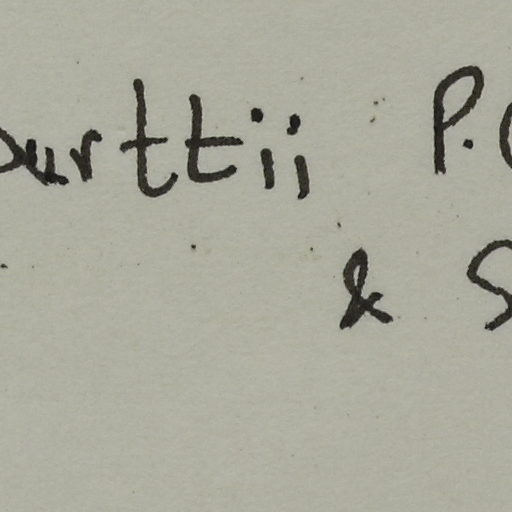 burttii P.
& S